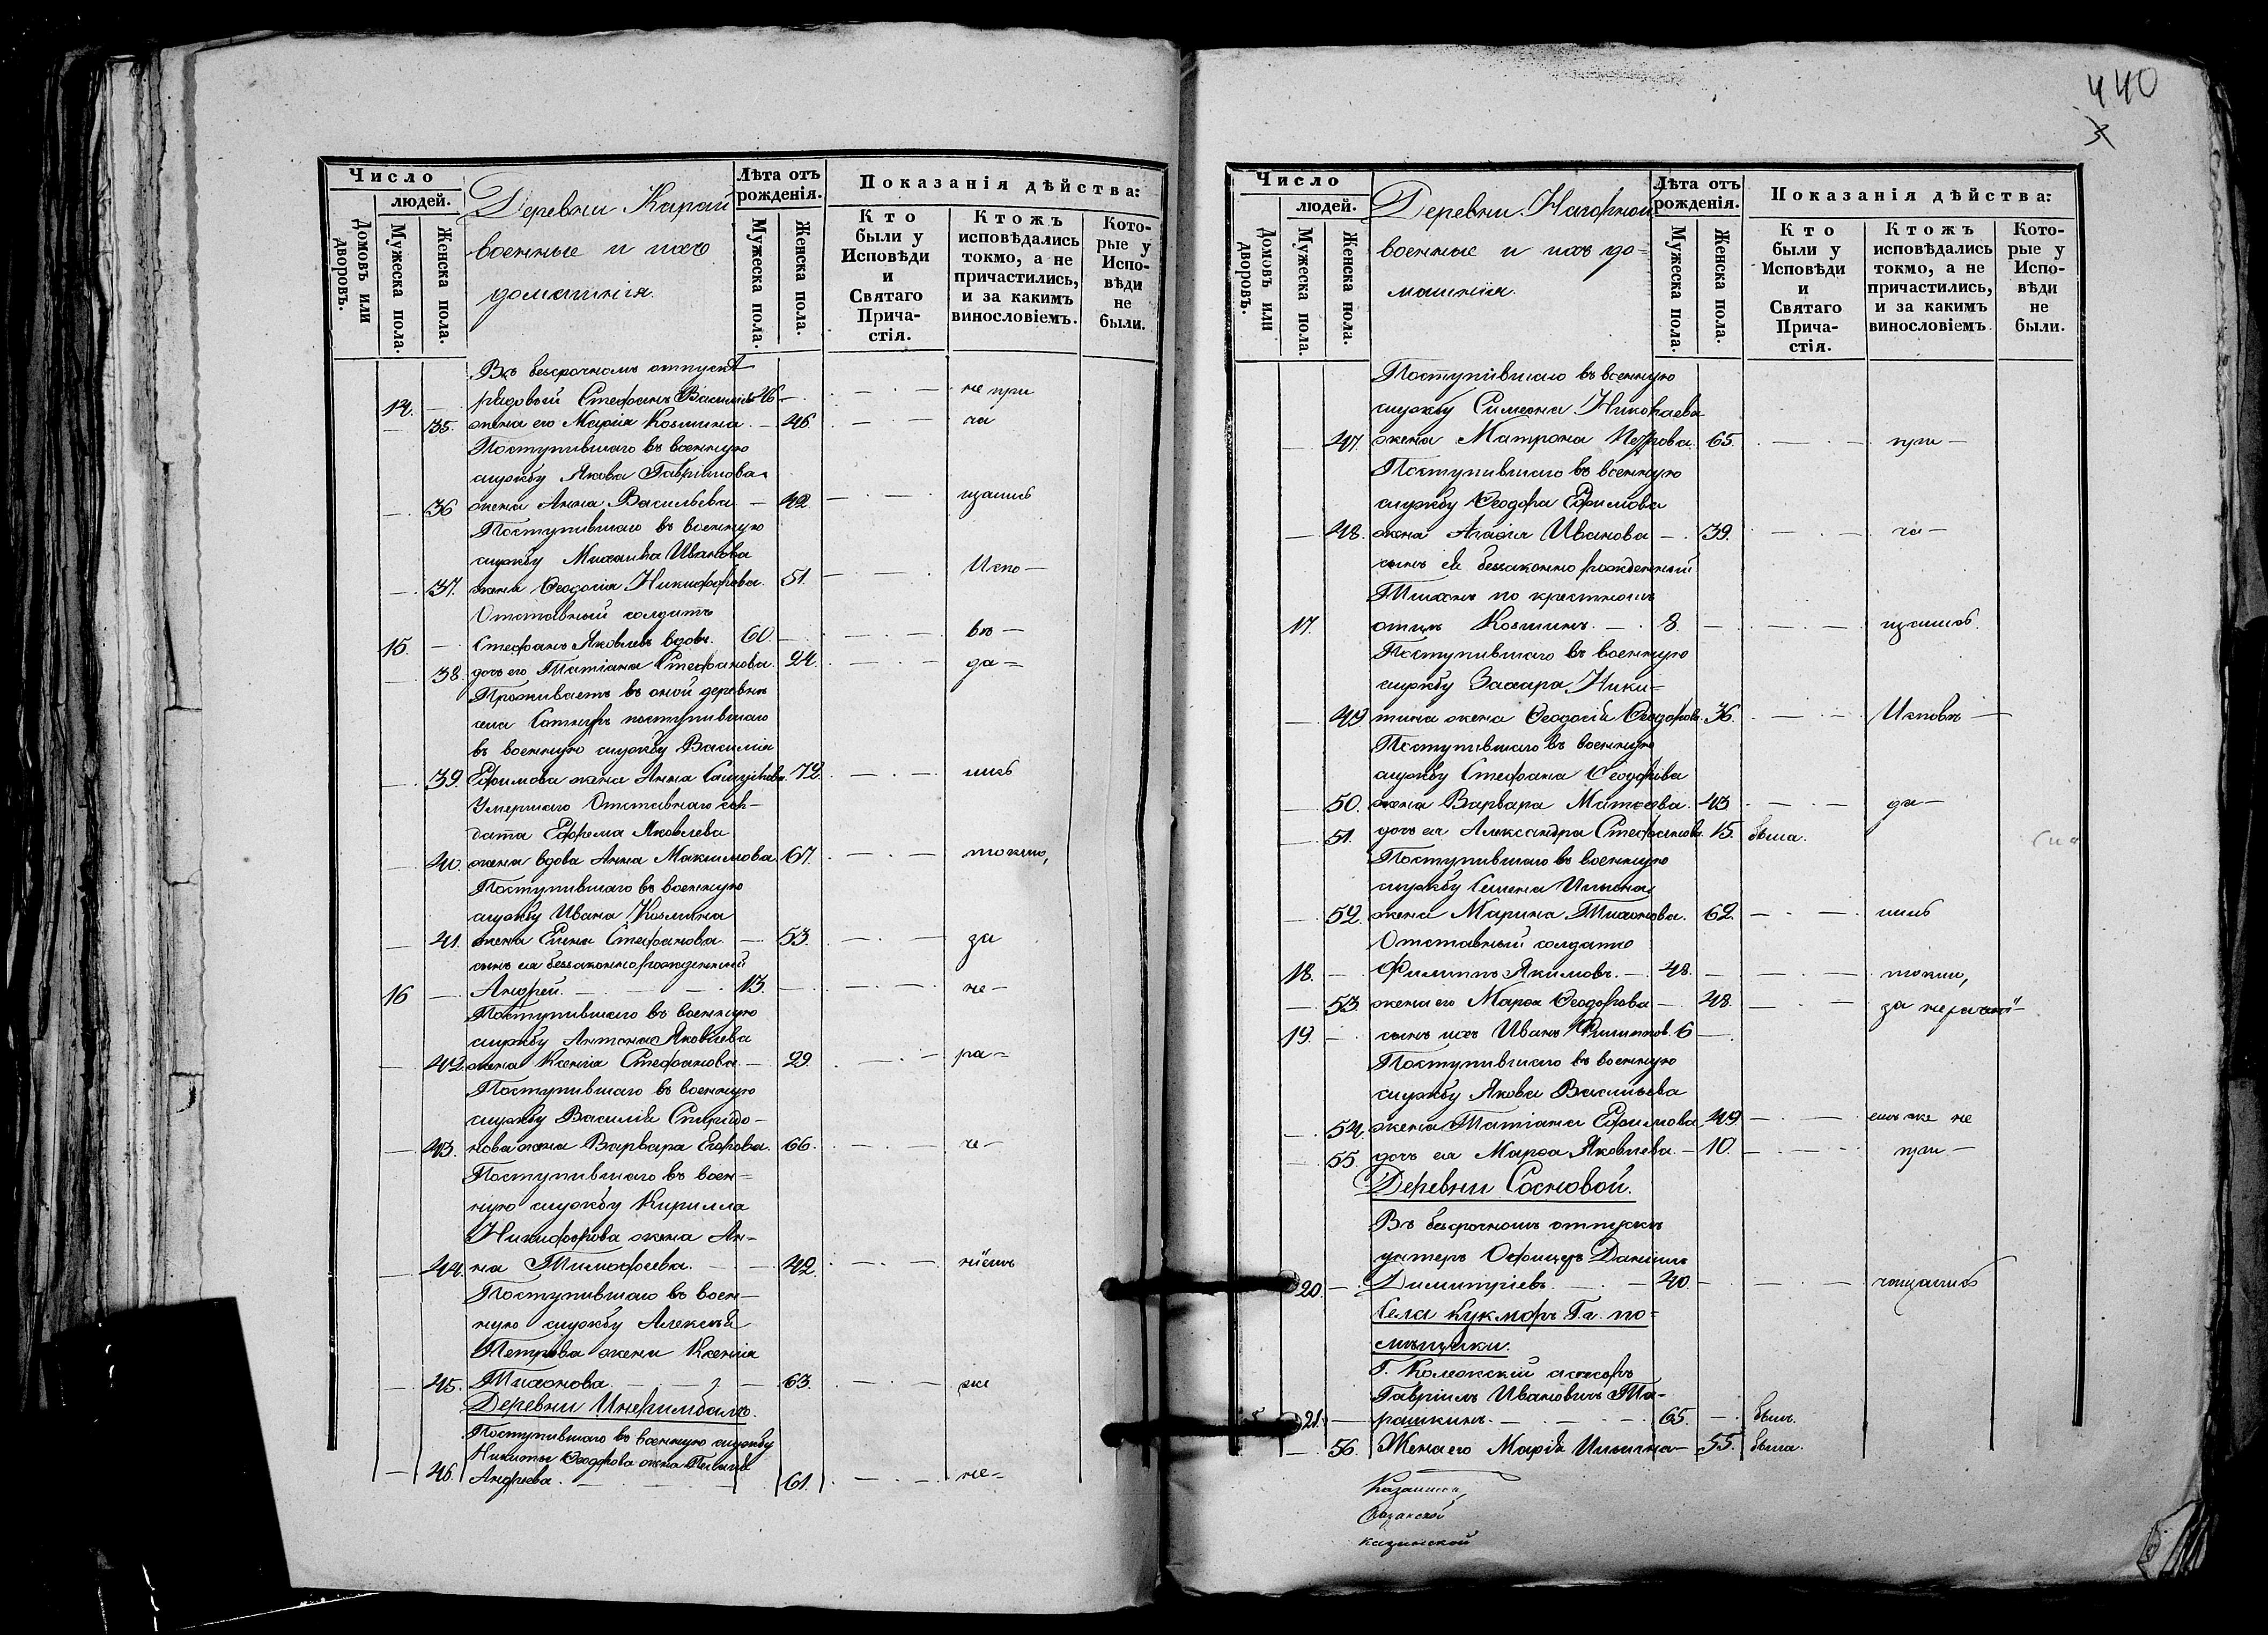 Число
людей.
Домовъ или дворовъ.
Мужеска пола.
Женска пола.
Деревни Карай
военные и ихъ
домашнія.
Лѣта отъ рожденія.
Мужеска пола.
Женска пола.
Показанія дѣйства:
Кто были у Исповѣди и Святаго Причастія.
Ктожъ исповѣдались токмо, а не причастились, и за какимъ винословіемъ.
Которые у Исповѣди не были.
Въ безсрочномъ отпускѣ
14. — рядовый Стефанъ 46 — не при
— 35. жена его Марія Козмина — 46 ча
Поступившаго въ военную
службу Якова Гаврилова
— 36 жена Анна Васильева — 42 щались
Поступившаго въ военную
службу Михаила Иванова
— 37. жена Ѳеодосія Никифорова. 51. Испо—
Отставный солдатъ
15. — Стефанъ Яковлевъ вдовъ. 60. — вѣ—
— 38. дочь его Татіана Стефанова. 24. да=
Проживаетъ въ оной деревнѣ
села поступившаго
въ военную службу Василія
— 39. Ефимова жена Анна 72. лись
Умершаго Отставнаго сол—
дата Ефрема Яковлева
— 40. жена вдова Анна Максимова 67. токмо,
Поступившаго въ военную
службу Ивана Козмина
— 41. жена Елена Стефанова. — 53. за
сынъ ея беззаконнорожденный
16 — Андрей. — 13. — не—
Поступившаго въ военную
службу Антона Яковлева
— 42. жена Ксенія Стефанова — 29. ра=
Поступившаго въ военную
службу Василія Спиридо—
— 43. нова жена Варвара Егорова. 66. че—
Поступившаго въ воен=
ную службу Кирилла
Никифорова жена Ан—
— 44. на Тимофеева. — 42. ніемъ
Поступившаго въ воен—
ную службу Алексѣя
Петрова жена Ксенія
— 45. Тихонова. — 63. же
Деревни
Поступившаго въ военную службу
Никиты Ѳеодорова жена
— 46. Андреева. — 61. не=
440
3
Число
людей.
Домовъ или дворовъ.
Мужеска пола.
Женска пола.
Деревни Нагорной
военные и ихъ до=
машнія.
Лѣта отъ рожденія.
Мужеска пола.
Женска пола.
Показанія дѣйства:
Кто были у Исповѣди и Святаго Причастія.
Ктожъ исповѣдались токмо, а не причастились, и за какимъ винословіемъ.
Которые у Исповѣди не были.
Поступившаго въ военную
службу Симеона Николаева
— 47 жена Матрона Петрова. 65. при—
Поступившаго въ военную
службу Ѳеодора Ефимова
— 48. жена Агафія Иванова — 39. ча—
сынъ ея беззаконно рожденный
Тихонъ по крестномъ
17. отцѣ Козминъ. — 8. — щались.
Поступившаго въ военную
службу Захара Ники=
— 49 тина жена Ѳеодосія 36. Исповѣ—
Поступившаго въ военную
службу Стефана Ѳеодорова
— 50. жена Варвара Матвеева. 43 да—
— 51. дочь ея Александра Стефанова 15. была.
Поступившаго въ военную
службу Семена
— 52. жена Марина Тихонова. 62. лись
Отставный солдатъ
18. — Филиппъ Якимовъ. — 48. — токмо,
— 53. жена его Марѳа Ѳеодорова — 48. за нерачені—
19. — сынъ ихъ Иванъ Филиппов. 6 —
Поступившаго въ военную
службу Якова Васильева
— 54. жена Татіана Ефимова 49 емъ же не
— 55. дочь ея Марѳа Яковлева. — 10. при—
Деревни Сосновой.
Въ безсрочномъ отпускѣ
унтеръ Офицеръ Даніилъ
20. — Димитріевъ. — 40. — чащались
Села Кукморъ Г.г. по=
мѣщики.
Г.
Гавріилъ Ивановичъ Та—
21. — рашкинъ. — 65. — былъ.
— 56. Жена его Марія Ильина — 55. была.